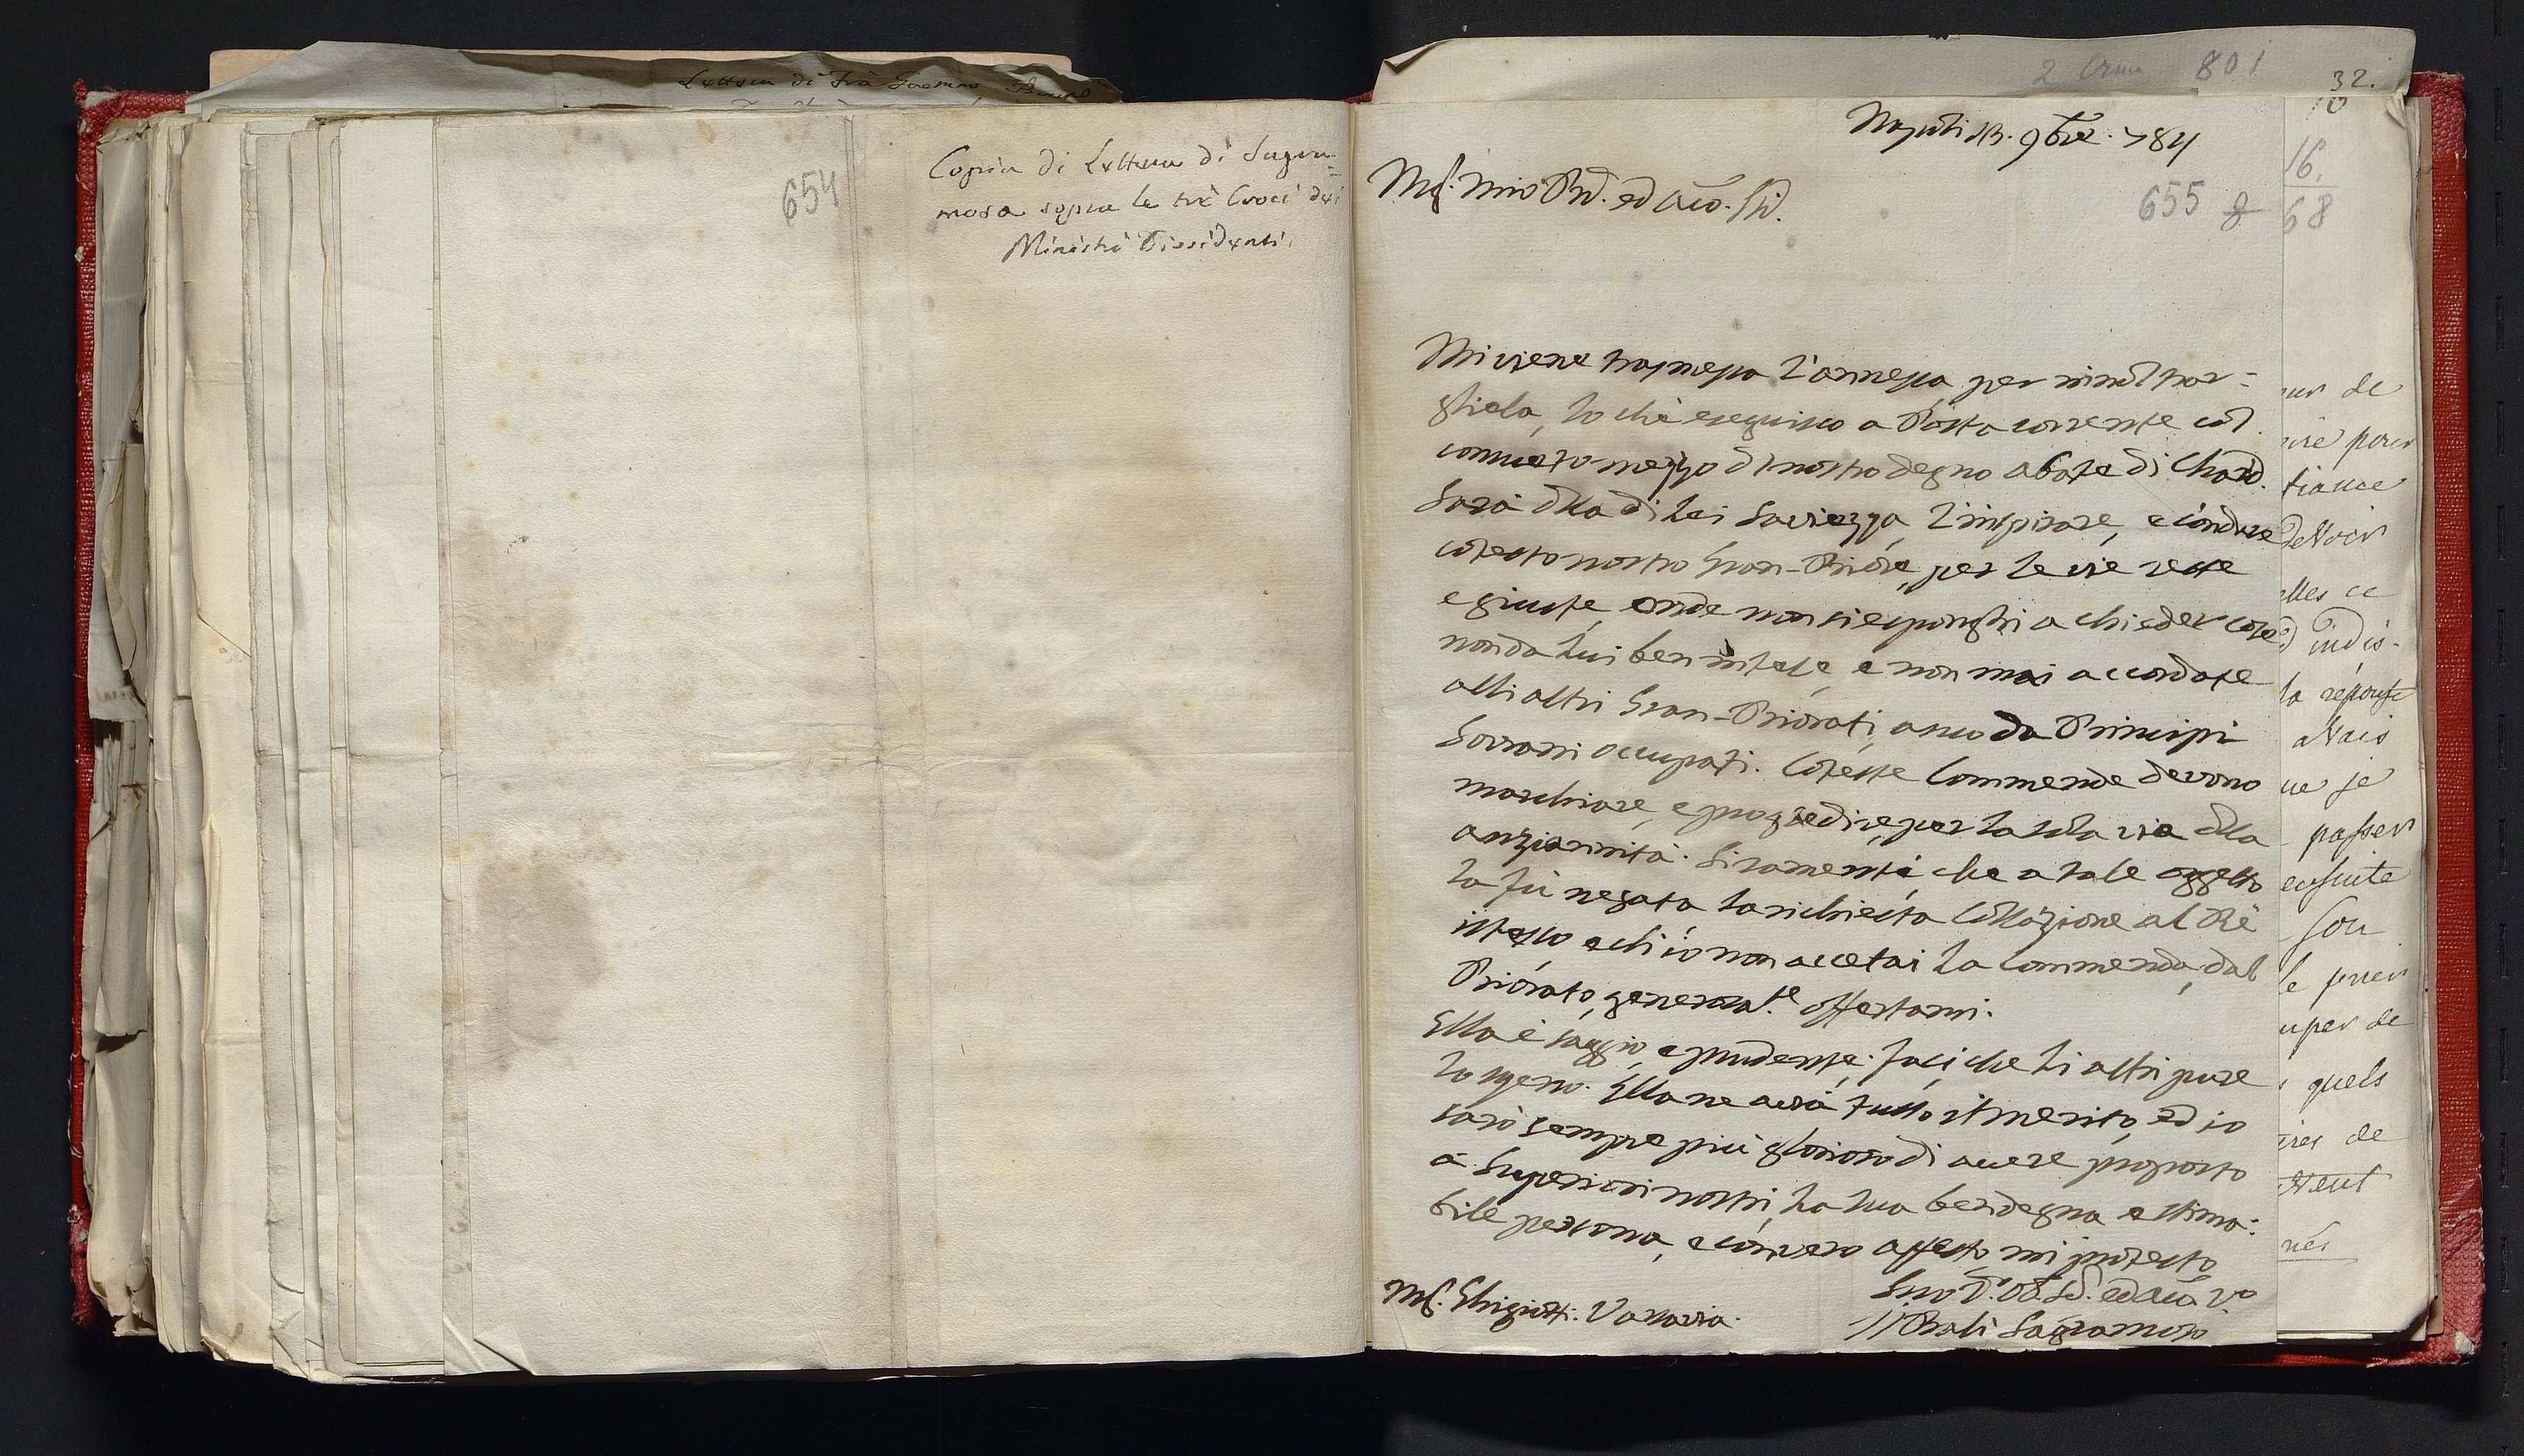 Lettera di frà Gaetano Bruno
654
Copia di Lettera di Sagra=
mosa sopra le trè Croci dei
Ministri Dissidenti.
2 801
32.
10
16.
68
Napoli 9bre. 784
655 8
Mio ed
Mi viene trasmessa l'annessa, per inoltrar=
gliela, lo chè eseguisco a Posta corrente col
consueto mezzo dl nostro degno abate di
Sarà dlla di Lei Saviezza, l'inspirare, e condure
cotesto nostro Gran-Priore, per le vie rette
e giuste, onde non si esponghi a chieder cose
non da lui ben intese, e non mai accordate
alli altri Gran-Priorati, anco da Principi
Sovrani occupati. Coteste Commende devono
marchiare, e progredire per la sola via dlla
anzianità. Si ramenti, che a tale oggetto
la fù negata la richiesta Collazione al Rè
istesso, e chi io non accetai la Commenda, dal
Priorato, generosate. offertami.
Ella è saggio, e prudente, faci, che li altri pure
lo sijeno. Ella ne avrà tutto il merito, ed io
sarò sempre più glorioso di avere proposto
a Superiori nostri, la sua ben degna e stima=
bile persona, e con vero affetto, mi protesto
Suo
Ghigiotti. Varsavia.
il Balì Sagramoso
eur de
ire pour
tiance
devoir
elles ce
d'indis-
la réponse
avais
ue je
passer
ensuite
son
le prier
uper de
quels
ires de
nés